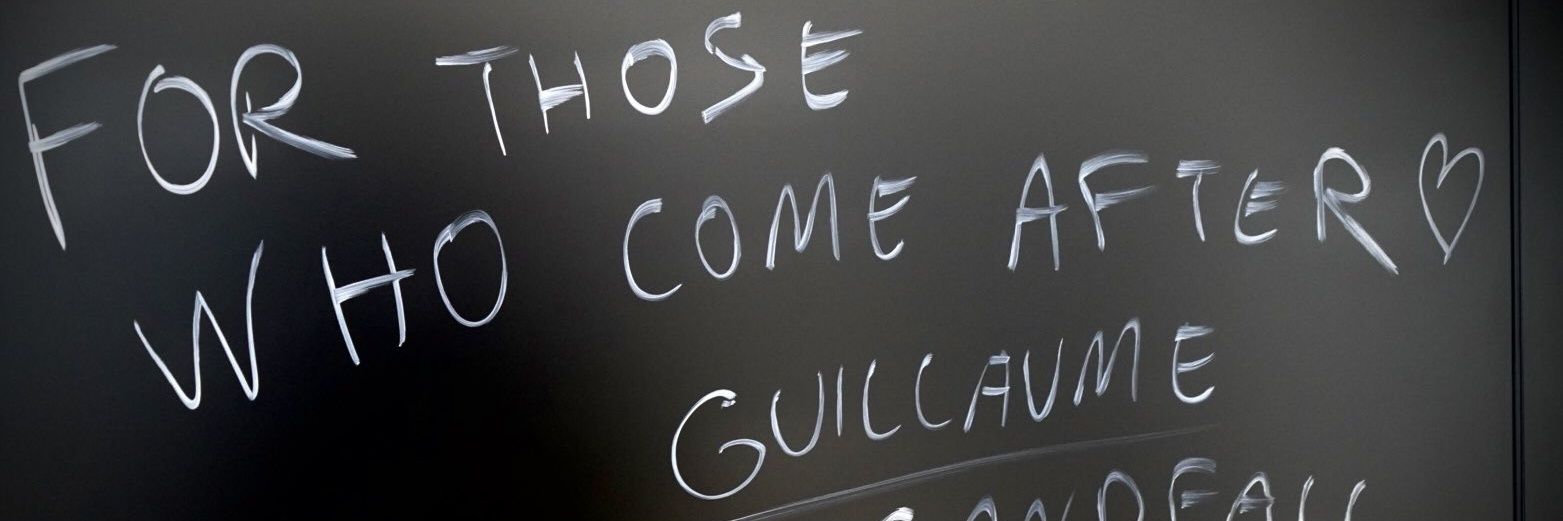 FOR THOSE
WHO COME AFTER ♡
GUILLAUME